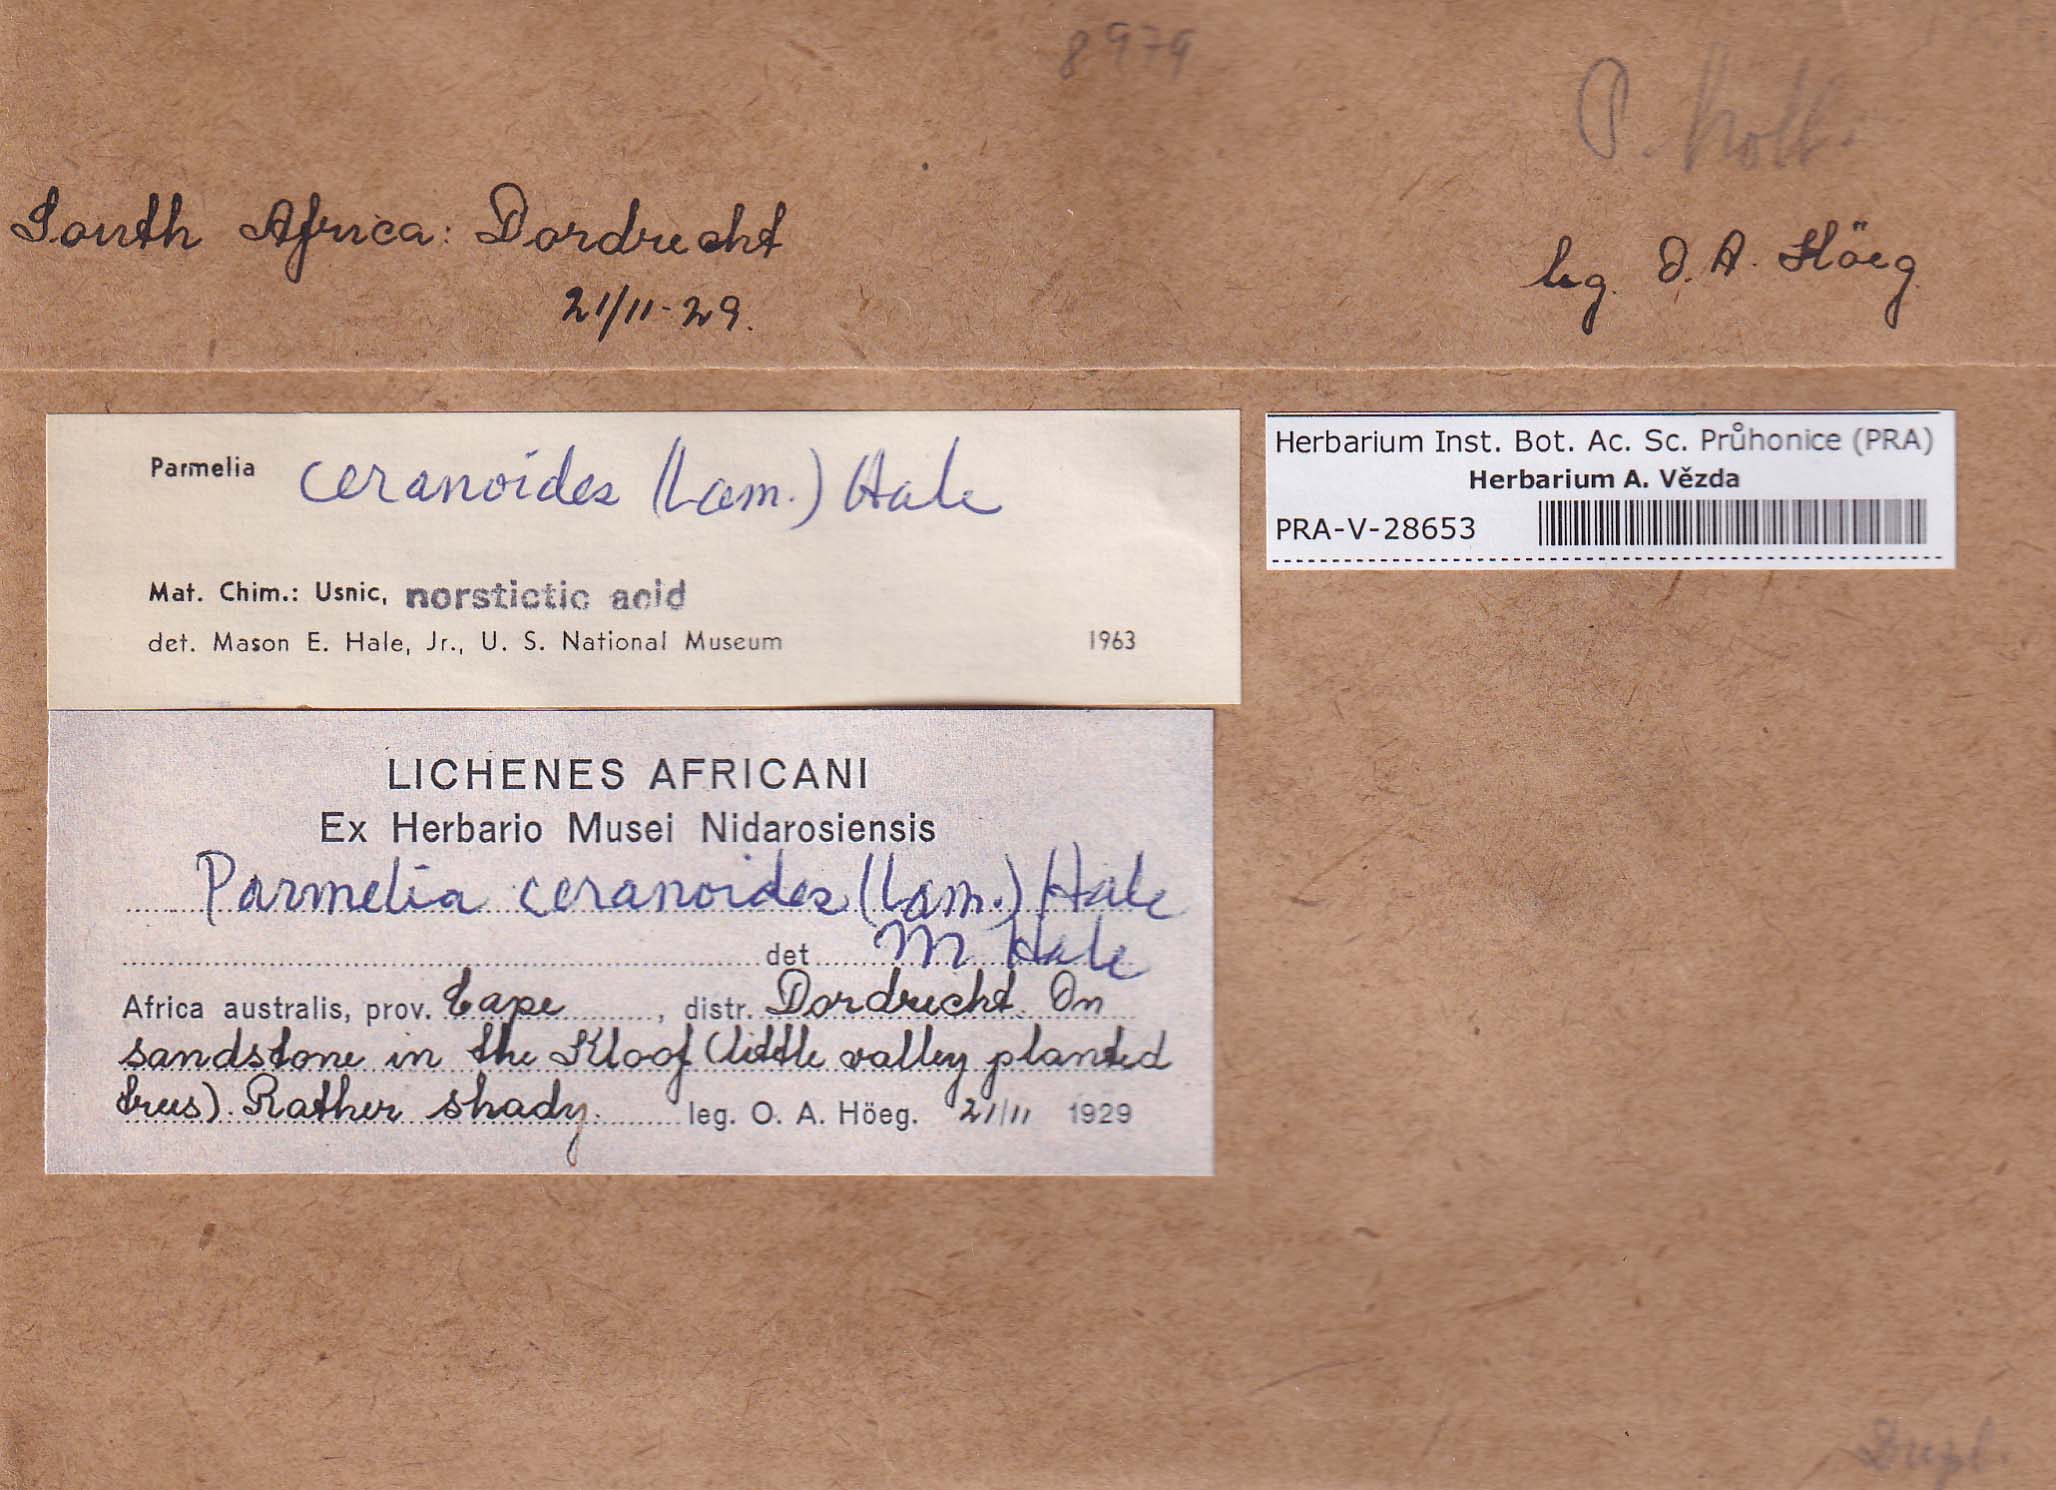 8979
South Africa: Dordrecht
21/11-29.
leg. O. A. Höeg.
Parmelia ceranoides (Lam.) Hale
Mat. Chim.: Usnic, norstictic acid
det. Mason E. Hale, Jr., U. S. National Museum 1963
Herbarium Inst. Bot. Ac. Sc. Průhonice (PRA)
Herbarium A. Vězda
PRA-V-28653
LICHENES AFRICANI
Ex Herbario Musei Nidarosiensis
Parmelia ceranoides (Lam.) Hale
det M Hale
Africa australis, prov. Cape, distr. Dordrecht. On
sandstone in the Kloof (little valley planted
trees). Rather shady. leg. O. A. Höeg. 21/11 1929
Dupl.